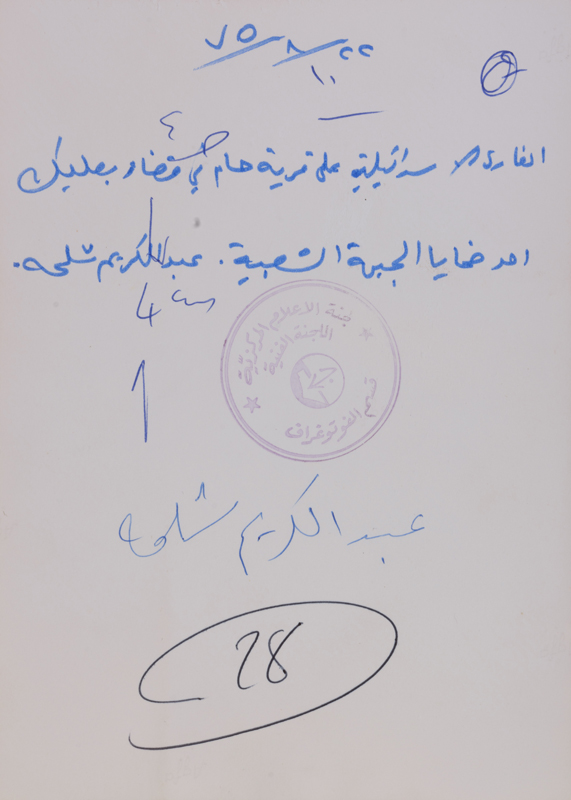 ٧٥/٨/٢٢
١١
الغارة الاسرائيلية على قرية حام في قضاء بعلبك
احد ضحايا الجبهة الشعبية. عبدالكريم شلحه.
4 سم
لجنة الاعلام المركزية
اللجنة الفنية
قسم الفوتوغراف
عبد الكريم شلحه
28